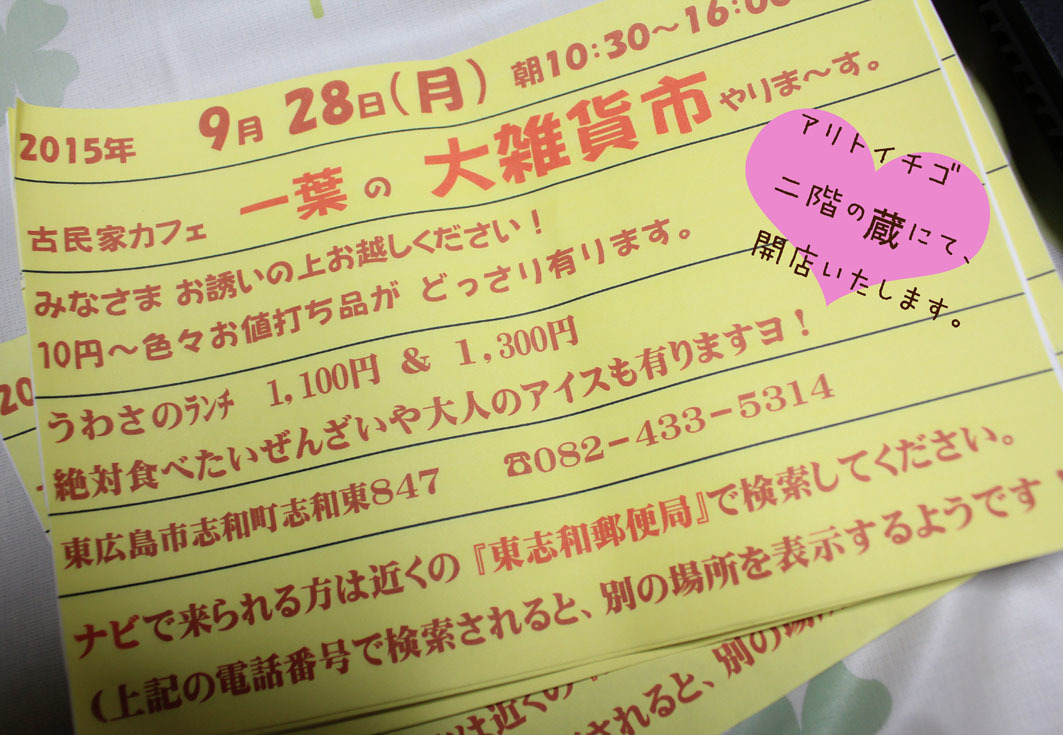 2015年 9月 28日(月) 朝10:30～16:00
古民家カフェ 一葉の 大雑貨市 やりま～す。
みなさま お誘いの上お越しください！
10円～色々お値打ち品が どっさり有ります。
うわさのﾗﾝﾁ 1,100円 & 1,300円
絶対食べたいぜんざいや大人のアイスも有りますヨ！
東広島市志和町志和東847 ☎082-433-5314
ナビで来られる方は近くの『東志和郵便局』で検索してください。
(上記の電話番号で検索されると、別の場所を表示するようです
アリトイチゴ
二階の蔵にて、
開店いたします。
20
は近くの
されると、別の場所